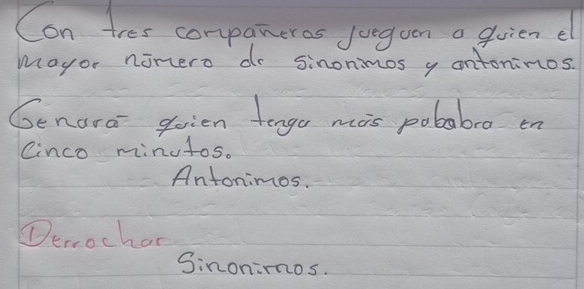 Con tres compañeros jueguen a quien el
mayor número de sinonimos y antonimos.
Genará quien tenga más palabra en
cinco minutos.
Antonimos.
Derrochar
Sinonimos.